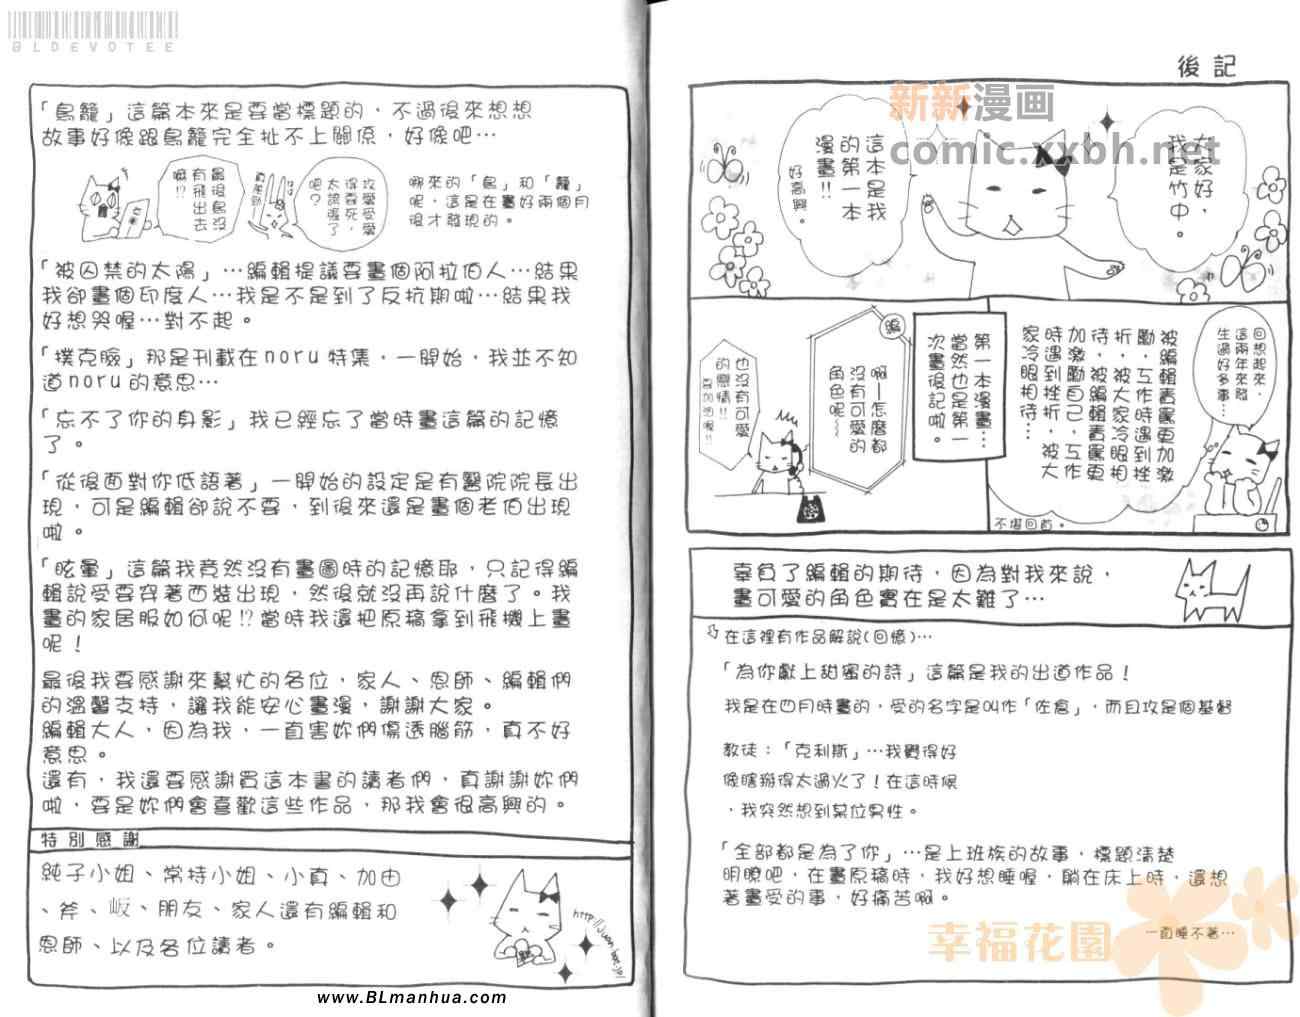 後記
大家好，
我是竹中。
這本是我
的第一本
漫畫!!
好高興。
回想起來，
這兩年來發
生過好多事…
被編輯責罵更加激
勵，互作時遇到挫
折，被大家冷眼相
待，被編輯責罵更
加激勵自己，互作
時遇到挫折，被大
家冷眼相待…
不堪回首。
第一本漫畫…
當然也是第一
次畫後記啦。
編
啊—怎麼都
沒有可愛的
角色呢～
也沒有可愛
的戀情!!
要加油喔!!
辜負了編輯的期待，因為對我來說，
畫可愛的角色實在是太難了…
在這裡有作品解說(回憶)…
「為你獻上甜蜜的詩」這篇是我的出道作品！
我是在四月時畫的，受的名字是叫作「佐倉」，而且攻是個基督
教徒：「克利斯」…我覺得好
像瞎掰得太過火了！在這時候
，我突然想到某位男性。
「全部都是為了你」…是上班族的故事，標題清楚
明瞭吧，在畫原稿時，我好想睡喔，躺在床上時，還想
著畫受的事，好痛苦啊。
一直睡不著…
「鳥籠」這篇本來是要當標題的，不過後來想想
故事好像跟鳥籠完全扯不上關係，好像吧…
哪來的「鳥」和「籠」
呢，這是在畫好兩個月
後才發現的。
攻愛受愛
得要死，
太誇張了
吧？
最後鳥沒
有飛出去
嘛!?
「被囚禁的太陽」…編輯提議要畫個阿拉伯人…結果
我卻畫個印度人…我是不是到了反抗期啦…結果我
好想哭喔…對不起。
「撲克臉」那是刊載在noru特集，一開始，我並不知
道noru的意思…
「忘不了你的身影」我已經忘了當時畫這篇的記憶
了。
「從後面對你低語著」一開始的設定是有醫院院長出
現，可是編輯卻說不要，到後來還是畫個老伯出現
啦。
「眩暈」這篇我竟然沒有畫圖時的記憶耶，只記得編
輯說受要穿著西裝出現，然後就沒再說什麼了。我
畫的家居服如何呢!?當時我還把原稿拿到飛機上畫
呢！
最後我要感謝來幫忙的各位，家人、恩師、編輯們
的溫馨支持，讓我能安心畫漫，謝謝大家。
編輯大人，因為我，一直害妳們傷透腦筋，真不好
意思。
還有，我還要感謝買這本書的讀者們，真謝謝妳們
啦，要是妳們會喜歡這些作品，那我會很高興的。
特別感謝
純子小姐、常特小姐、小真、加由
、斧、岐、朋友、家人還有編輯和
恩師、以及各位讀者。
BLDEVOTEE
新新漫画
comic.xxbh.net
幸福花園
www.BLmanhua.com